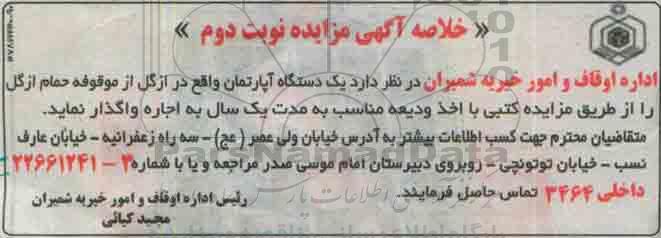 « خلاصه آگهی مزایده نوبت دوم »
اداره اوقاف و امور خیریه شمیران در نظر دارد یک دستگاه آپارتمان واقع در ازگل از موقوفه حمام ازگل
را از طریق مزایده کتبی با اخذ ودیعه مناسب به مدت یک سال به اجاره واگذار نماید.
متقاضیان محترم جهت کسب اطلاعات بیشتر به آدرس خیابان ولی عصر (عج) - سه راه زعفرانیه - خیابان عارف
نسب - خیابان توتونچی - روبروی دبیرستان امام موسی صدر مراجعه و یا با شماره ۳ - ۲۲۶۶۱۲۴۱
داخلی ۳۴۶۴ تماس حاصل فرمایند.
رئیس اداره اوقاف و امور خیریه شمیران
مجید کیائی